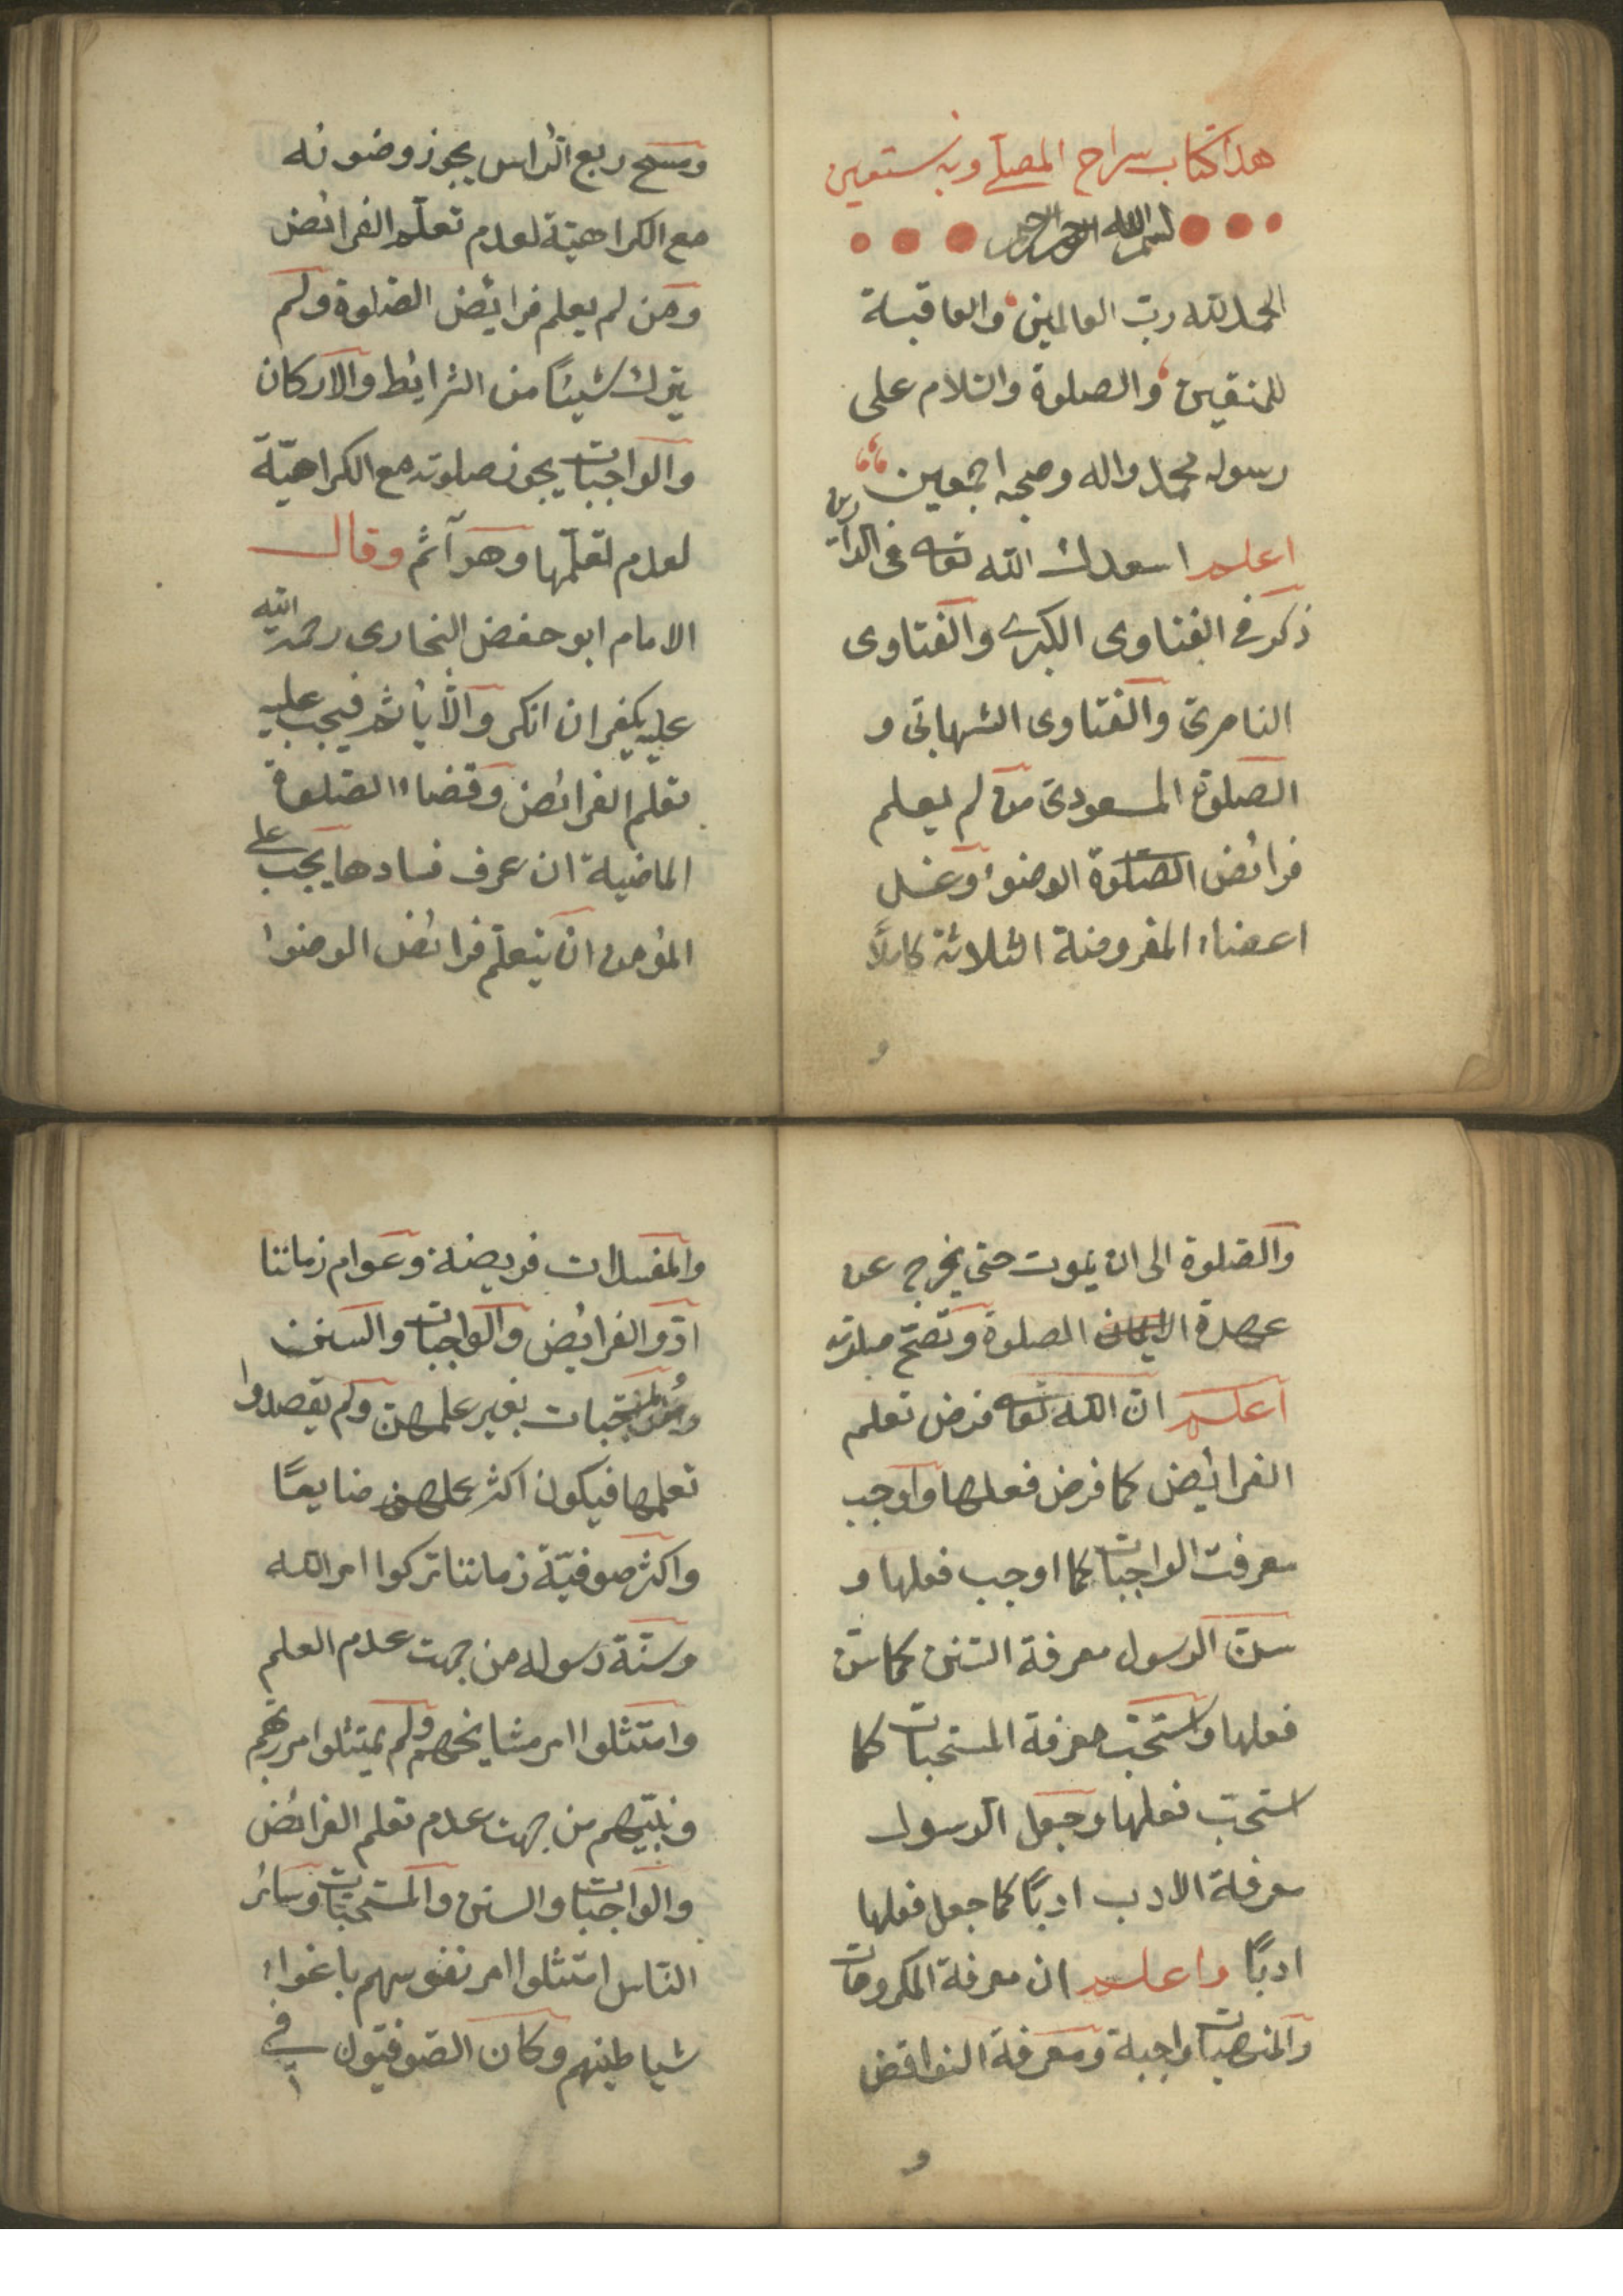 هذا كتاب سراج المصلى وبه نستعين
بسم الله الرحمن الرحيم
الحمد لله رب العالمين والعاقبة
للمتقين والصلوة والسلام على
رسوله محمد واله وصحبه اجمعين
اعلم اسعدك الله تعالى فى الدارين
ذكر فى الفتاوى الكبرى والفتاوى
الناصرى والفتاوى الشهابى و
الصلوة المسعودى من لم يعلم
فرائض الصلوة الوضوء وغسل
اعضاء المفروضة الثلاثة كاملا
و
ومسح ربع الراس يجوز وضوئه
مع الكراهيّة لعدم تعلّم الفرائض
ومن لم يعلم فرايض الصّلوة ولم
يترك شيئًا من الشرايط والاركان
والواجبات يجوز صلوته مع الكراهيّة
لعدم تعلّمها وهو آثم وقال
الامام ابو حفص البخارى رحمة الله
عليه يكفر ان انكر والّا يأثم فيجب عليه
تعلم الفرائض وقضاء الصّلوة
الماضية ان عرف فسادها يجب على
المؤمن ان يتعلّم فرائض الوضوء
والصّلوة الى ان يموت حتى يخرج عن
عهدة الصلوة وتصحّ صلوته
اعلم انّ الله تعالى فرض تعلم
الفرائيض كما فرض فعلها واوجب
معرفت الواجبات كما اوجب فعلها و
سنّ الرسول معرفة السّنن كما سنّ
فعلها واستحبّ معرفة المستحبات كما
استحبّ فعلها وجعل الرسول
معرفة الادب ادبًا كما جعل فعلها
ادبًا واعلم ان معرفة المكروهات
والمنهيات واجبة ومعرفة النواقض
و
والمفسدات فريضة وعوام زماننا
ادّو الفرائيض والواجبات والسنن
والمستحبات بغير علمهنّ ولم يقصدوا
تعلمها فيكون اكثر عملهم ضايعًا
واكثر صوفيّة زماننا تركوا امر الله
وسنّة رسوله من جهت عدم العلم
وامتثلوا امر مشايخهم ولم يمتثلوا امر ربّهم
ونبيّهم من جهت عدم تعلم الفرائض
والواجبات والسنن والمستحبّات وسائر
النّاس امتثلوا امر نفوسهم باغواء
شياطينهم وكان الصّوفيّون فى